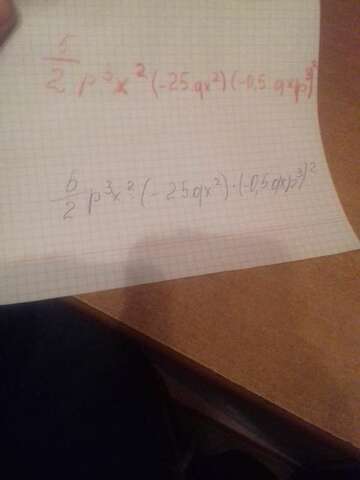 5/2 p³x² (-25qx²)(-0,5qxp³)²
5/2 p³x² · (-25qx²) · (-0,5qxp³)²